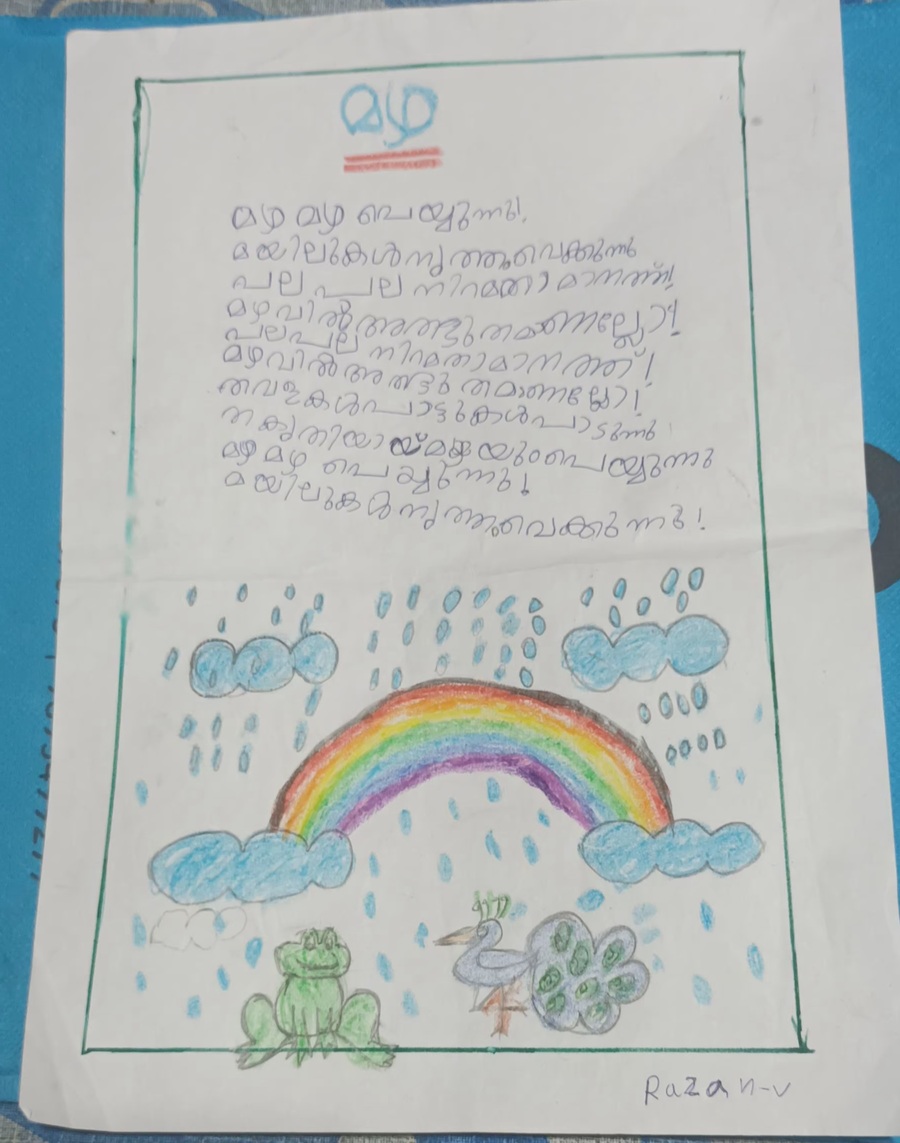 മഴ
മഴ മഴ പെയ്യുന്നു!.
മയിലുകൾ നൃത്തംവെക്കുന്നു
പല പല നിറമതാ മാനത്ത്!
മഴവിൽ അത്ഭുതമാണല്ലോ!
പലപല നിറമതാമാനത്ത്!
മഴവിൽ അത്ഭുതമാണല്ലോ!
തവളകൾപാട്ടുകൾപാടുന്നു
തകൃതിയായ് മഴയുംപെയ്യുന്നു
മഴ മഴ പെയ്യുന്നു!
മയിലുകൾനൃത്തംവെക്കുന്നു!
Razan-v